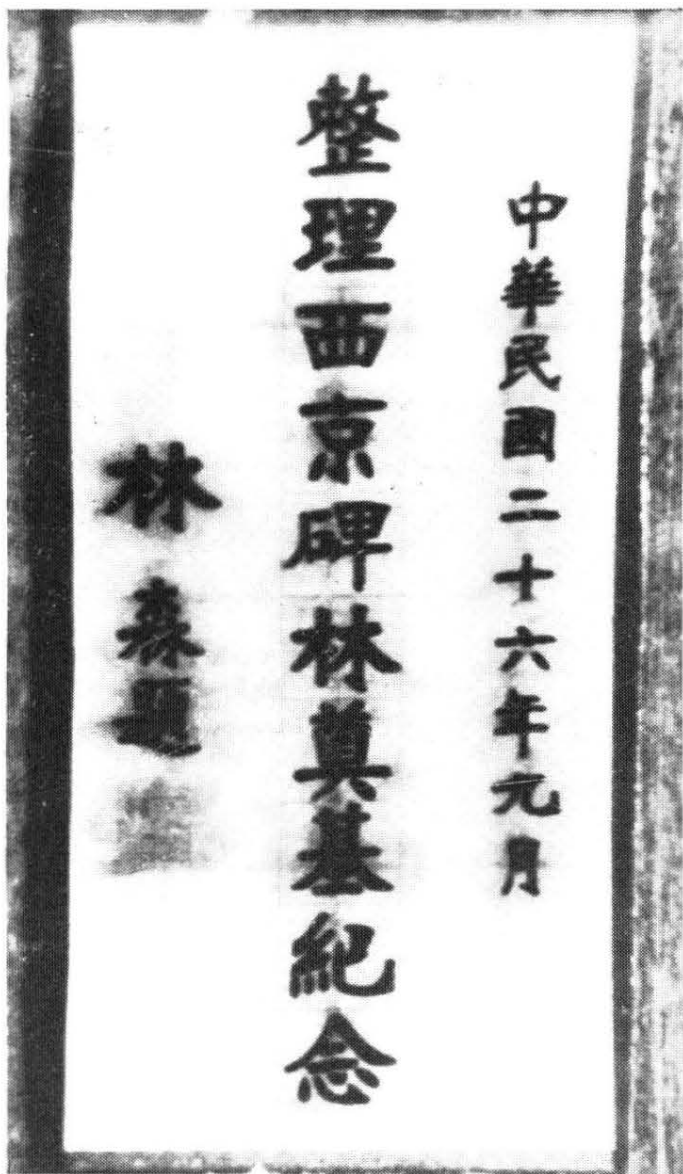 中華民國二十六年元月
整理西京碑林奠基紀念
林森題